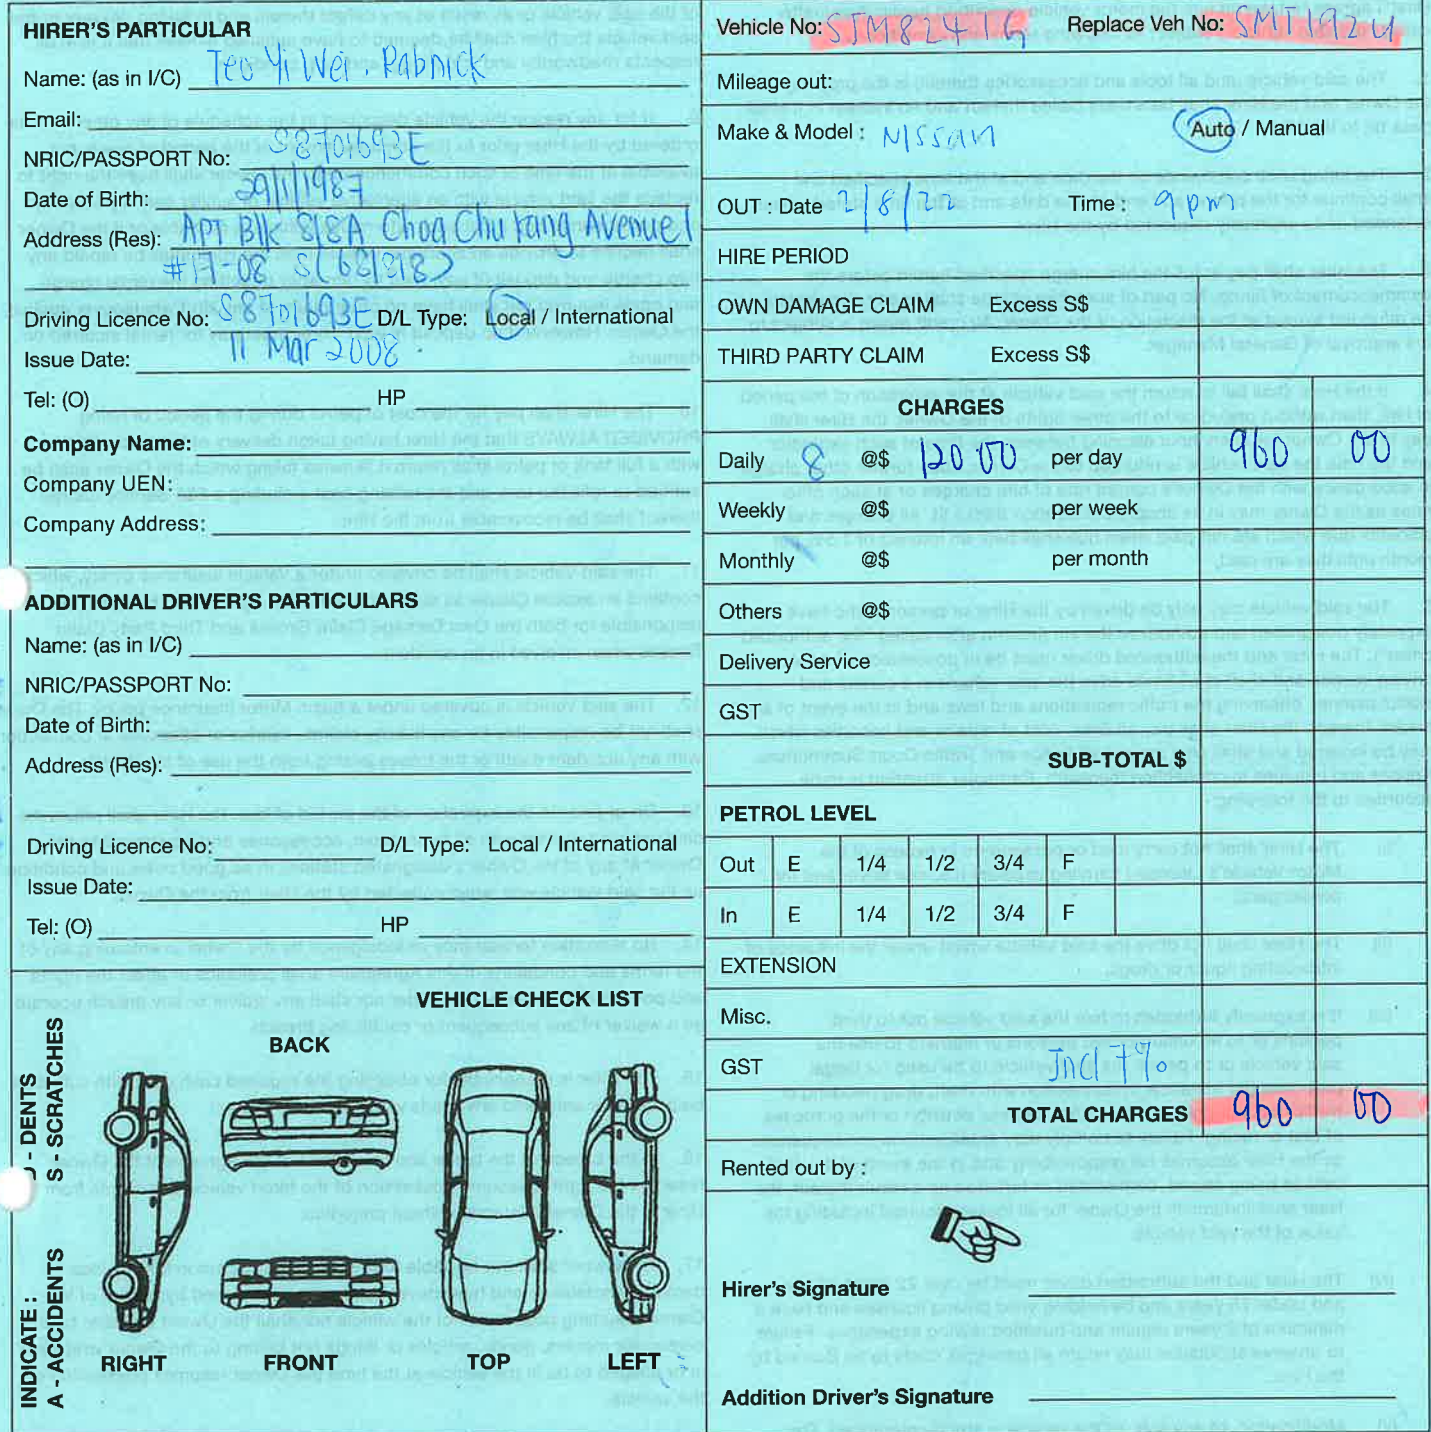 HIRER'S PARTICULAR
Name: (as in I/C) Teo Yi Wei,
Email:
NRIC/PASSPORT No: S8701693E
Date of Birth: 29/1/1987
Address (Res): APT Blk 818A Choa Chu Kang Avenue 1
#11-08 S(681818)
Driving Licence No: S8701693E D/L Type: Local / International
Issue Date: 11 Mar 2008
Tel: (O) HP
Company Name:
Company UEN:
Company Address:
ADDITIONAL DRIVER'S PARTICULARS
Name: (as in I/C)
NRIC/PASSPORT No:
Date of Birth:
Address (Res):
Driving Licence No: D/L Type: Local / International
Issue Date:
Tel: (O) HP
VEHICLE CHECK LIST
INDICATE :
A - ACCIDENTS
D - DENTS
S - SCRATCHES
BACK
RIGHT FRONT TOP LEFT
Vehicle No: SJM8241G Replace Veh No: SMT1924
Mileage out:
Make & Model : NISSAN Auto / Manual
OUT : Date 2/8/22 Time : 9pm
HIRE PERIOD
OWN DAMAGE CLAIM Excess S$
THIRD PARTY CLAIM Excess S$
CHARGES
Daily 8 @$ 120.00 per day 960 00
Weekly @$ per week
Monthly @$ per month
Others @$
Delivery Service
GST
SUB-TOTAL $
PETROL LEVEL
Out E 1/4 1/2 3/4 F
In E 1/4 1/2 3/4 F
EXTENSION
Misc.
GST Incl 7%
TOTAL CHARGES 960 00
Rented out by :
Hirer's Signature
Addition Driver's Signature